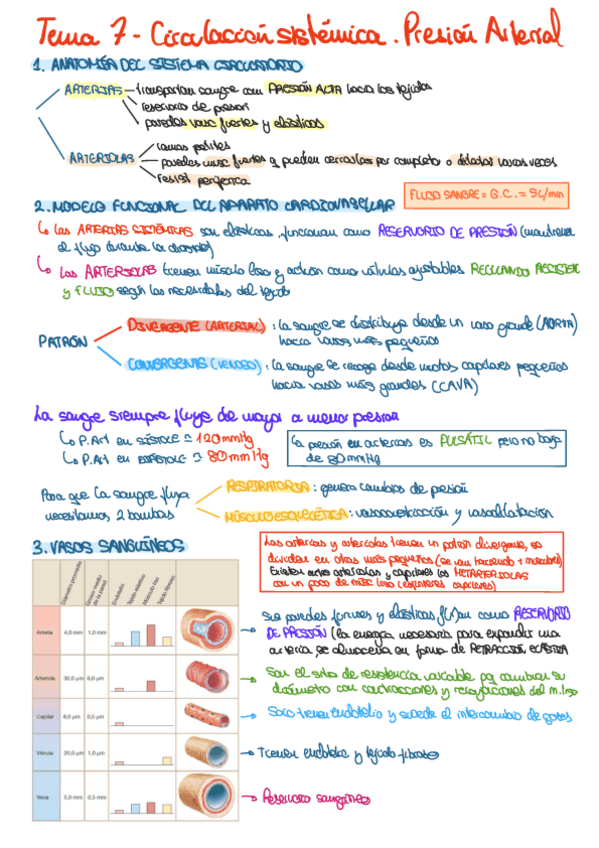 Tema 7 - Circulación sistémica. Presión Arterial
1. ANATOMÍA DEL SISTEMA CIRCULATORIO
ARTERIAS - transportan sangre con PRESIÓN ALTA hacia los tejidos
reservorio de presión
paredes musc fuertes y elásticas
ARTERIOLAS - ramas
paredes musc fuertes q pueden cerrarlas por completo o dilatarlas varias veces
resist periférica
FLUJO SANGRE = G.C. = 5L/min
2. MODELO FUNCIONAL DEL APARATO CARDIOVASCULAR
Las ARTERIAS SISTÉMICAS son elásticas, funcionan como RESERVORIO DE PRESIÓN (mantienen
el flujo durante la diástole)
Las ARTERIOLAS tienen músculo liso y actúan como válvulas ajustables REGULANDO RESISTEN
y FLUJO según las necesidades del tejido
PATRÓN
DIVERGENTE (ARTERIAL) : la sangre se distribuye desde un vaso grande (AORTA)
hacia vasos más pequeños
CONVERGENTE (VENOSO) : la sangre se recoge desde muchos capilares pequeños
hacia vasos más grandes (CAVA)
La sangre siempre fluye de mayor a menor presión
P.Art en SÍSTOLE ≈ 120mmHg
P.Art en DIÁSTOLE ≈ 80mmHg
La presión en arterias es PULSÁTIL pero no baja
de 80mmHg
Para que la sangre fluya
necesitamos 2 bombas
RESPIRATORIA : genera cambios de presión
MÚSCULOESQUELÉTICA : vasoconstricción y vasodilatación
3. VASOS SANGUÍNEOS
Las arterias y arteriolas tienen un patrón divergente, se
dividen en otras más pequeñas (se van haciendo + pequeñas)
Existen entre arteriolas y capilares las METARTERIOLAS
con un poco de músc liso (esfínteres capilares)
Diámetro promedio
Grosor medio de la pared
Endotelio
Tejido elástico
Músculo liso
Tejido fibroso
Arteria 4,0 mm 1,0 mm
Arteriola 30,0 µm 6,0 µm
Capilar 8,0 µm 0,5 µm
Vénula 20,0 µm 1,0 µm
Vena 5,0 mm 0,5 mm
Sus paredes fuertes y elásticas f(x)an como RESERVORIO
DE PRESIÓN (la energía necesaria para expandir una
arteria se almacena en forma de RETRACCIÓN ELÁSTICA
Son el sitio de resistencia variable pq cambian su
diámetro con contracciones y relajaciones del m.liso
Solo tienen endotelio y sucede el intercambio de gases
Tienen endotelio y tejido fibroso
Reservorio sanguíneo